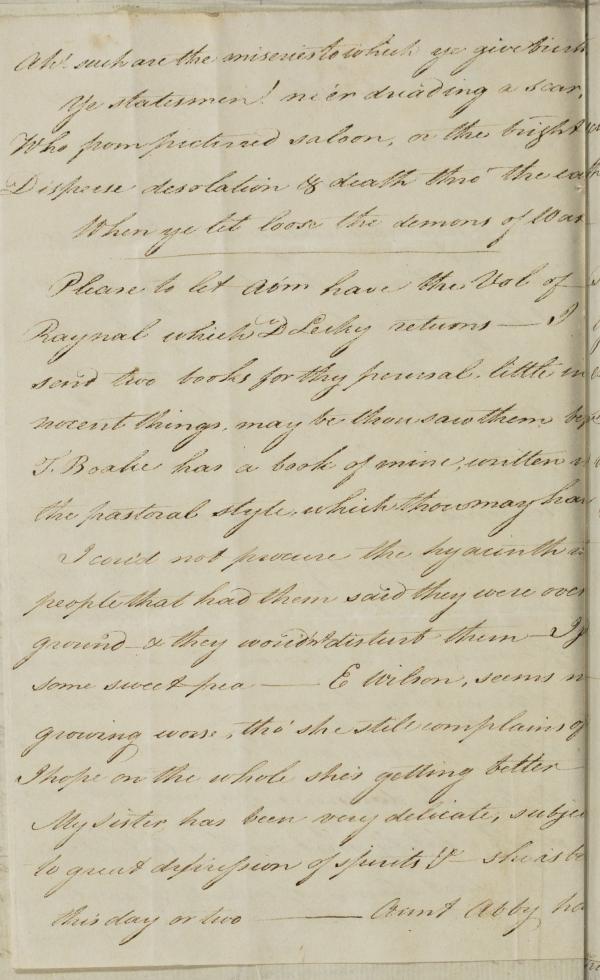 Ah! such are the miseries to which ye give birth
Ye statesmen! ne'er dreading a scar,
Who from pictured saloon, or the bright
Disperse desolation & death thro' the earth
When ye let loose the demons of War
Please to let have the Vol of
Raynal which Dr Lecky returns — I
send two books for thy perusal, little in
nocent things, may be thou saw them
T. Boake has a book of mine, written
the pastoral style, which thou may
I cou'd not procure the hyacinth
people that had them said they were over
ground — & they wou'dn't disturb them —
some sweet pea — E Wilson, seems
growing worse, tho' she still complains of
I hope on the whole she's getting better
My Sister has been very delicate,
to great depression of spirits &c — she is
this day or two — Aunt Abby